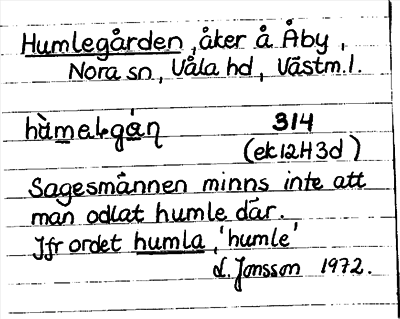 Humlegården, åker å Åby,
Nora sn, Våla hd, Västm.l.
hùmelgán 314
(ek 12H3d)
Sagesmannen minns inte att
man odlat humle där.
Jfr ordet humla, 'humle'
L. Jonsson 1972.